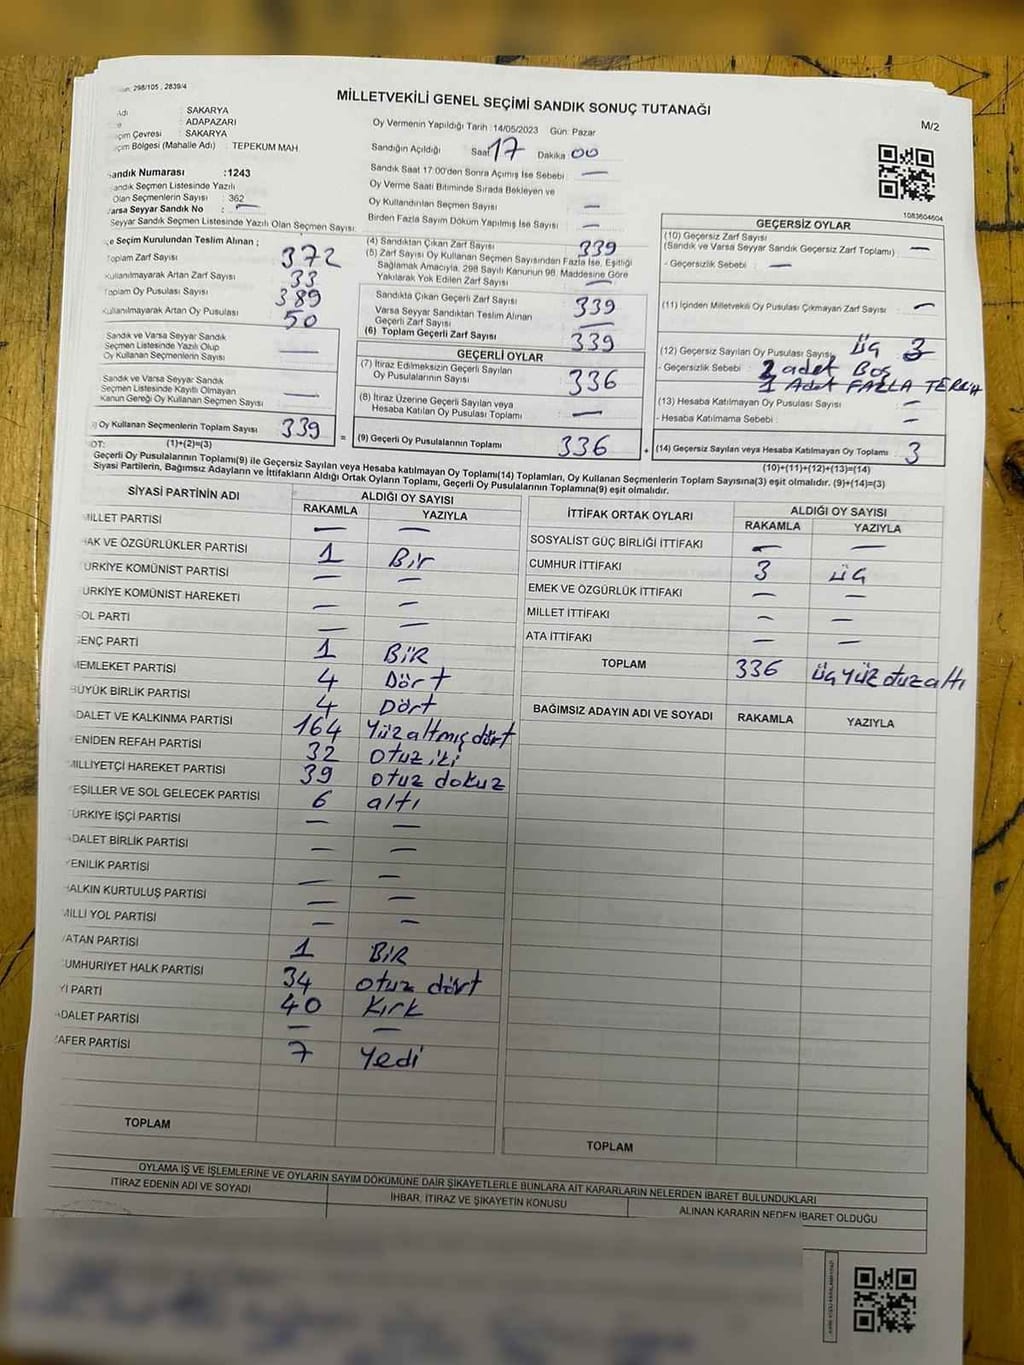 298/105 , 2839/4
MİLLETVEKİLİ GENEL SEÇİMİ SANDIK SONUÇ TUTANAĞI
M/2
: SAKARYA
: ADAPAZARI
Çevresi : SAKARYA
Bölgesi (Mahalle Adı) : TEPEKUM MAH.
Oy Vermenin Yapıldığı Tarih :14/05/2023 Gün: Pazar
Sandığın Açıldığı Saat 17 Dakika 00
Sandık Saat 17:00'den Sonra Açımış İse Sebebi : —
Oy Verme Saati Bitiminde Sırada Bekleyen ve
Oy Kullandırılan Seçmen Sayısı : —
Birden Fazla Sayım Döküm Yapılmış İse Sayısı : —
Sandık Numarası :1243
Sandık Seçmen Listesinde Yazılı
Olan Seçmenlerin Sayısı : 362
Varsa Seyyar Sandık No : —
Seyyar Sandık Seçmen Listesinde Yazılı Olan Seçmen Sayısı:
İlçe Seçim Kurulundan Teslim Alınan ;
Toplam Zarf Sayısı 372
Kullanılmayarak Artan Zarf Sayısı 33
Toplam Oy Pusulası Sayısı 389
Kullanılmayarak Artan Oy Pusulası 50
Sandık ve Varsa Seyyar Sandık
Seçmen Listesinde Yazılı Olup
Oy Kullanan Seçmenlerin Sayısı —
Sandık ve Varsa Seyyar Sandık
Seçmen Listesinde Kayıtlı Olmayan
Kanun Gereği Oy Kullanan Seçmen Sayısı —
Oy Kullanan Seçmenlerin Toplam Sayısı 339
(1)+(2)=(3)
(4) Sandıktan Çıkan Zarf Sayısı 339
(5) Zarf Sayısı Oy Kullanan Seçmen Sayısından Fazla İse, Eşitliği
Sağlamak Amacıyla, 298 Sayılı Kanunun 98. Maddesine Göre
Yakılarak Yok Edilen Zarf Sayısı —
Sandıkta Çıkan Geçerli Zarf Sayısı 339
Varsa Seyyar Sandıktan Teslim Alınan
Geçerli Zarf Sayısı —
(6) Toplam Geçerli Zarf Sayısı 339
GEÇERLİ OYLAR
(7) İtiraz Edilmeksizin Geçerli Sayılan
Oy Pusulalarının Sayısı 336
(8) İtiraz Üzerine Geçerli Sayılan veya
Hesaba Katılan Oy Pusulası Toplamı —
= (9) Geçerli Oy Pusulalarının Toplamı 336 +
1083604604
GEÇERSİZ OYLAR
(10) Geçersiz Zarf Sayısı
(Sandık ve Varsa Seyyar Sandık Geçersiz Zarf Toplamı) : —
- Geçersizlik Sebebi : —
(11) İçinden Milletvekili Oy Pusulası Çıkmayan Zarf Sayısı : —
(12) Geçersiz Sayılan Oy Pusulası Sayısı: üç 3
- Geçersizlik Sebebi : 2 adet Boş
1 Adet FAZLA TERCİH
(13) Hesaba Katılmayan Oy Pusulası Sayısı : —
- Hesaba Katılmama Sebebi : —
(14) Geçersiz Sayılan veya Hesaba Katılmayan Oy Toplamı 3
(10)+(11)+(12)+(13)=(14)
Geçerli Oy Pusulalarının Toplamı(9) ile Geçersiz Sayılan veya Hesaba katılmayan Oy Toplamı(14) Toplamları, Oy Kullanan Seçmenlerin Toplam Sayısına(3) eşit olmalıdır. (9)+(14)=(3)
Siyasi Partilerin, Bağımsız Adayların ve İttifakların Aldığı Ortak Oyların Toplamı, Geçerli Oy Pusulalarının Toplamına(9) eşit olmalıdır.
SİYASİ PARTİNİN ADI ALDIĞI OY SAYISI
RAKAMLA YAZIYLA
MİLLET PARTİSİ — —
HAK VE ÖZGÜRLÜKLER PARTİSİ 1 Bir
TÜRKİYE KOMÜNİST PARTİSİ — —
TÜRKİYE KOMÜNİST HAREKETİ — —
SOL PARTİ — —
GENÇ PARTİ 1 BİR
MEMLEKET PARTİSİ 4 Dört
BÜYÜK BİRLİK PARTİSİ 4 Dört
ADALET VE KALKINMA PARTİSİ 164 Yüz altmış dört
YENİDEN REFAH PARTİSİ 32 otuz iki
MİLLİYETÇİ HAREKET PARTİSİ 39 otuz dokuz
YEŞİLLER VE SOL GELECEK PARTİSİ 6 altı
TÜRKİYE İŞÇİ PARTİSİ — —
ADALET BİRLİK PARTİSİ — —
YENİLİK PARTİSİ — —
HALKIN KURTULUŞ PARTİSİ — —
MİLLİ YOL PARTİSİ — —
VATAN PARTİSİ 1 BİR
CUMHURİYET HALK PARTİSİ 34 otuz dört
İYİ PARTİ 40 Kırk
ADALET PARTİSİ — —
ZAFER PARTİSİ 7 Yedi
TOPLAM
İTTİFAK ORTAK OYLARI ALDIĞI OY SAYISI
RAKAMLA YAZIYLA
SOSYALİST GÜÇ BİRLİĞİ İTTİFAKI — —
CUMHUR İTTİFAKI 3 üç
EMEK VE ÖZGÜRLÜK İTTİFAKI — —
MİLLET İTTİFAKI — —
ATA İTTİFAKI — —
TOPLAM 336 üçyüz otuz altı
BAĞIMSIZ ADAYIN ADI VE SOYADI RAKAMLA YAZIYLA
TOPLAM
OYLAMA İŞ VE İŞLEMLERİNE VE OYLARIN SAYIM DÖKÜMÜNE DAİR ŞİKAYETLERLE BUNLARA AİT KARARLARIN NELERDEN İBARET BULUNDUKLARI
İTİRAZ EDENİN ADI VE SOYADI İHBAR, İTİRAZ VE ŞİKAYETİN KONUSU ALINAN KARARIN NEDEN İBARET OLDUĞU